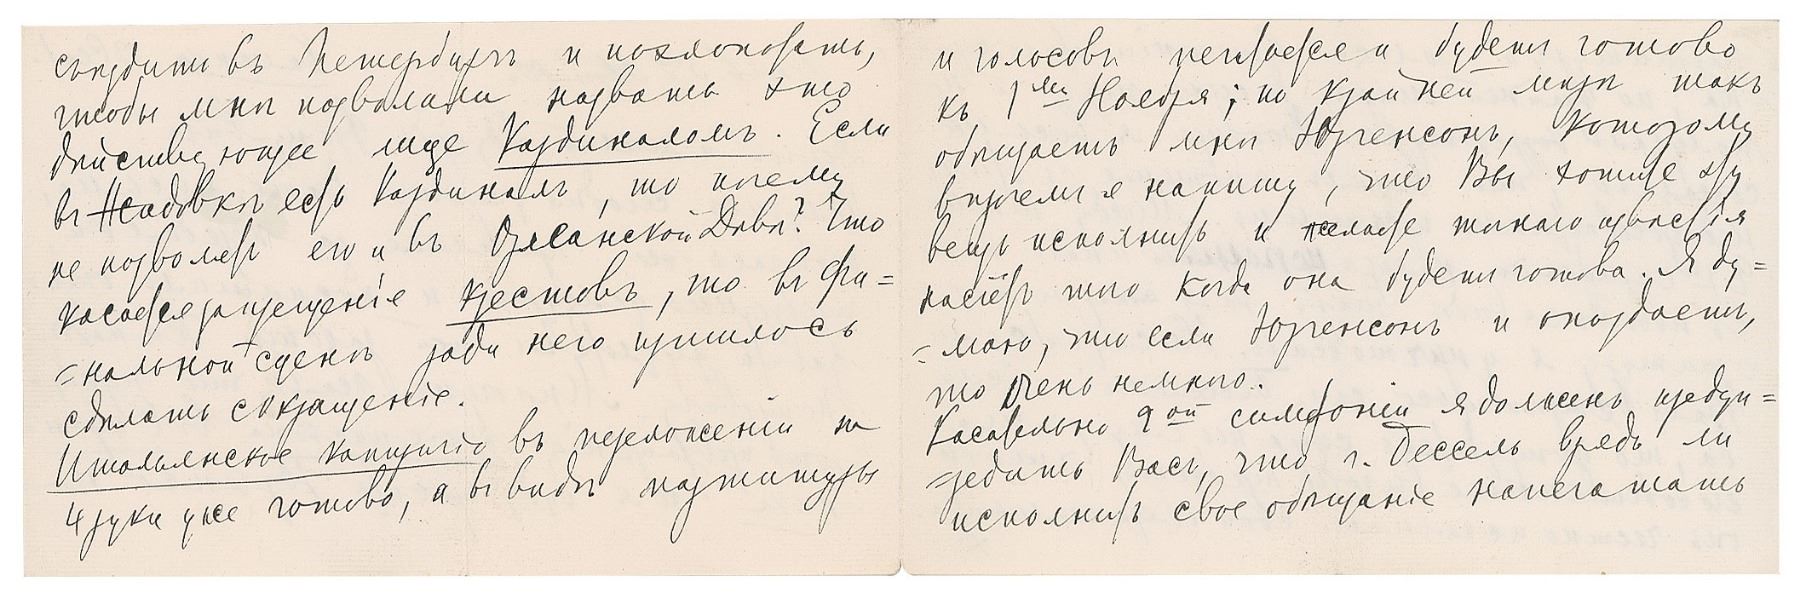 съѣздить въ Петербургъ и похлопотать,
чтобы мнѣ позволили назвать это
дѣйствующее лице Кардиналомъ. Если
въ Жидовкѣ есть Кардиналъ, то почему
не позволять его и въ Орлеанской Дѣвѣ? Что
касается запрещенiе крестовъ, то въ фи=
=нальной сценѣ ради него пришлось
сдѣлать сокращенiе.
Итальянское каприччiо въ переложенiи на
4 руки уже готово, а въ видѣ партитуры
и голосовъ печатается и будетъ готово
къ 1му Ноября; по крайней мѣрѣ такъ
обѣщаетъ мнѣ Юргенсонъ, которому
впрочемъ я напишу, что Вы хотите эту
вещь исполнить и желаете точнаго извѣстiя
насчетъ того когда она будетъ готова. Я ду=
=маю, что если Юргенсонъ и опоздаетъ,
то очень немного.
Касательно 2ой симфонiи я долженъ преду=
=редить Васъ, что г. Бессель врядъ ли
исполнить свое обѣщанiе напечатать